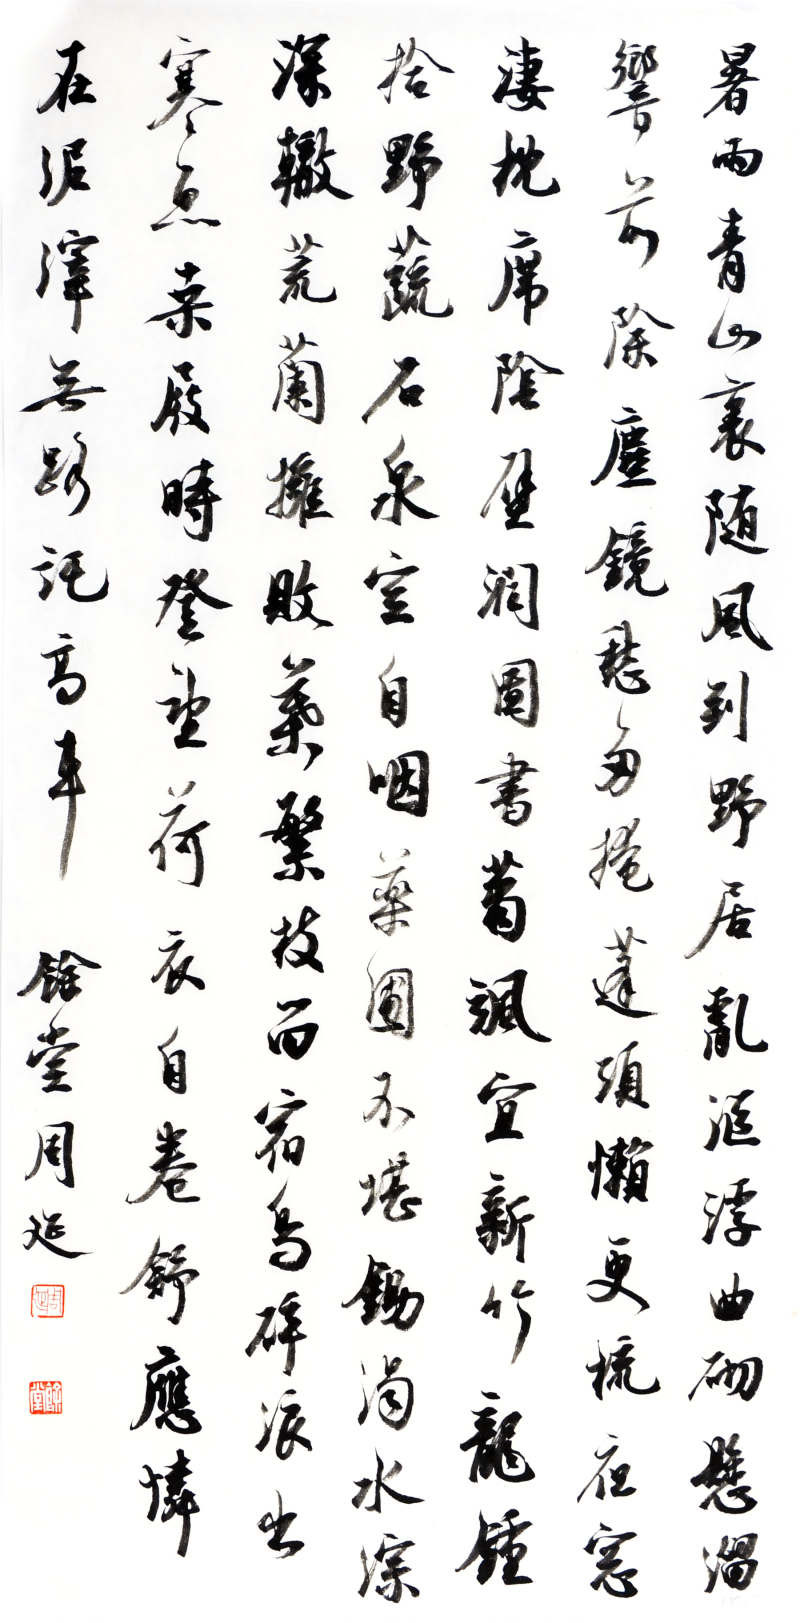 暑雨青山裏随風到野居亂漚浮曲砌懸溜
響前除塵鏡愁多掩蓬頭懶更梳夜窓
凄枕席陰壁潤圖書蕭颯宜新竹龍鍾
拾野蔬石泉空自咽藥圃不堪鋤濁水淙
深轍荒蘭擁敗渠繁枝留宿鳥碎浪出
寒魚桑屐時登望荷衣自卷舒應憐
在泥滓無路託高車 餘堂周延
周延
餘堂